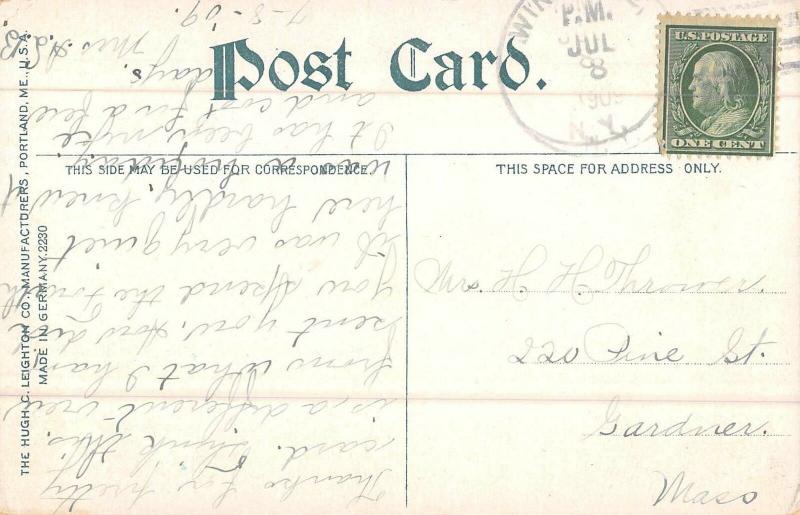 Post Card.
U.S. POSTAGE
ONE CENT
P.M.
JUL
8
1909
N.Y.
THIS SIDE MAY BE USED FOR CORRESPONDENCE.
THIS SPACE FOR ADDRESS ONLY.
THE HUGH C. LEIGHTON CO., MANUFACTURERS, PORTLAND, ME., U.S.A.
MADE IN GERMANY. 2230
Mrs. H. H.
220 Pine St.
Gardner.
Mass
Thanks for pretty
card. Think this
is a different view
from what I have
sent you. How did
you spend the Fourth
it was very quiet
here hardly knew it
was a holiday.
It has been quite
and cool for a few
days.
Mrs. A. L. B.
7-8-'09.